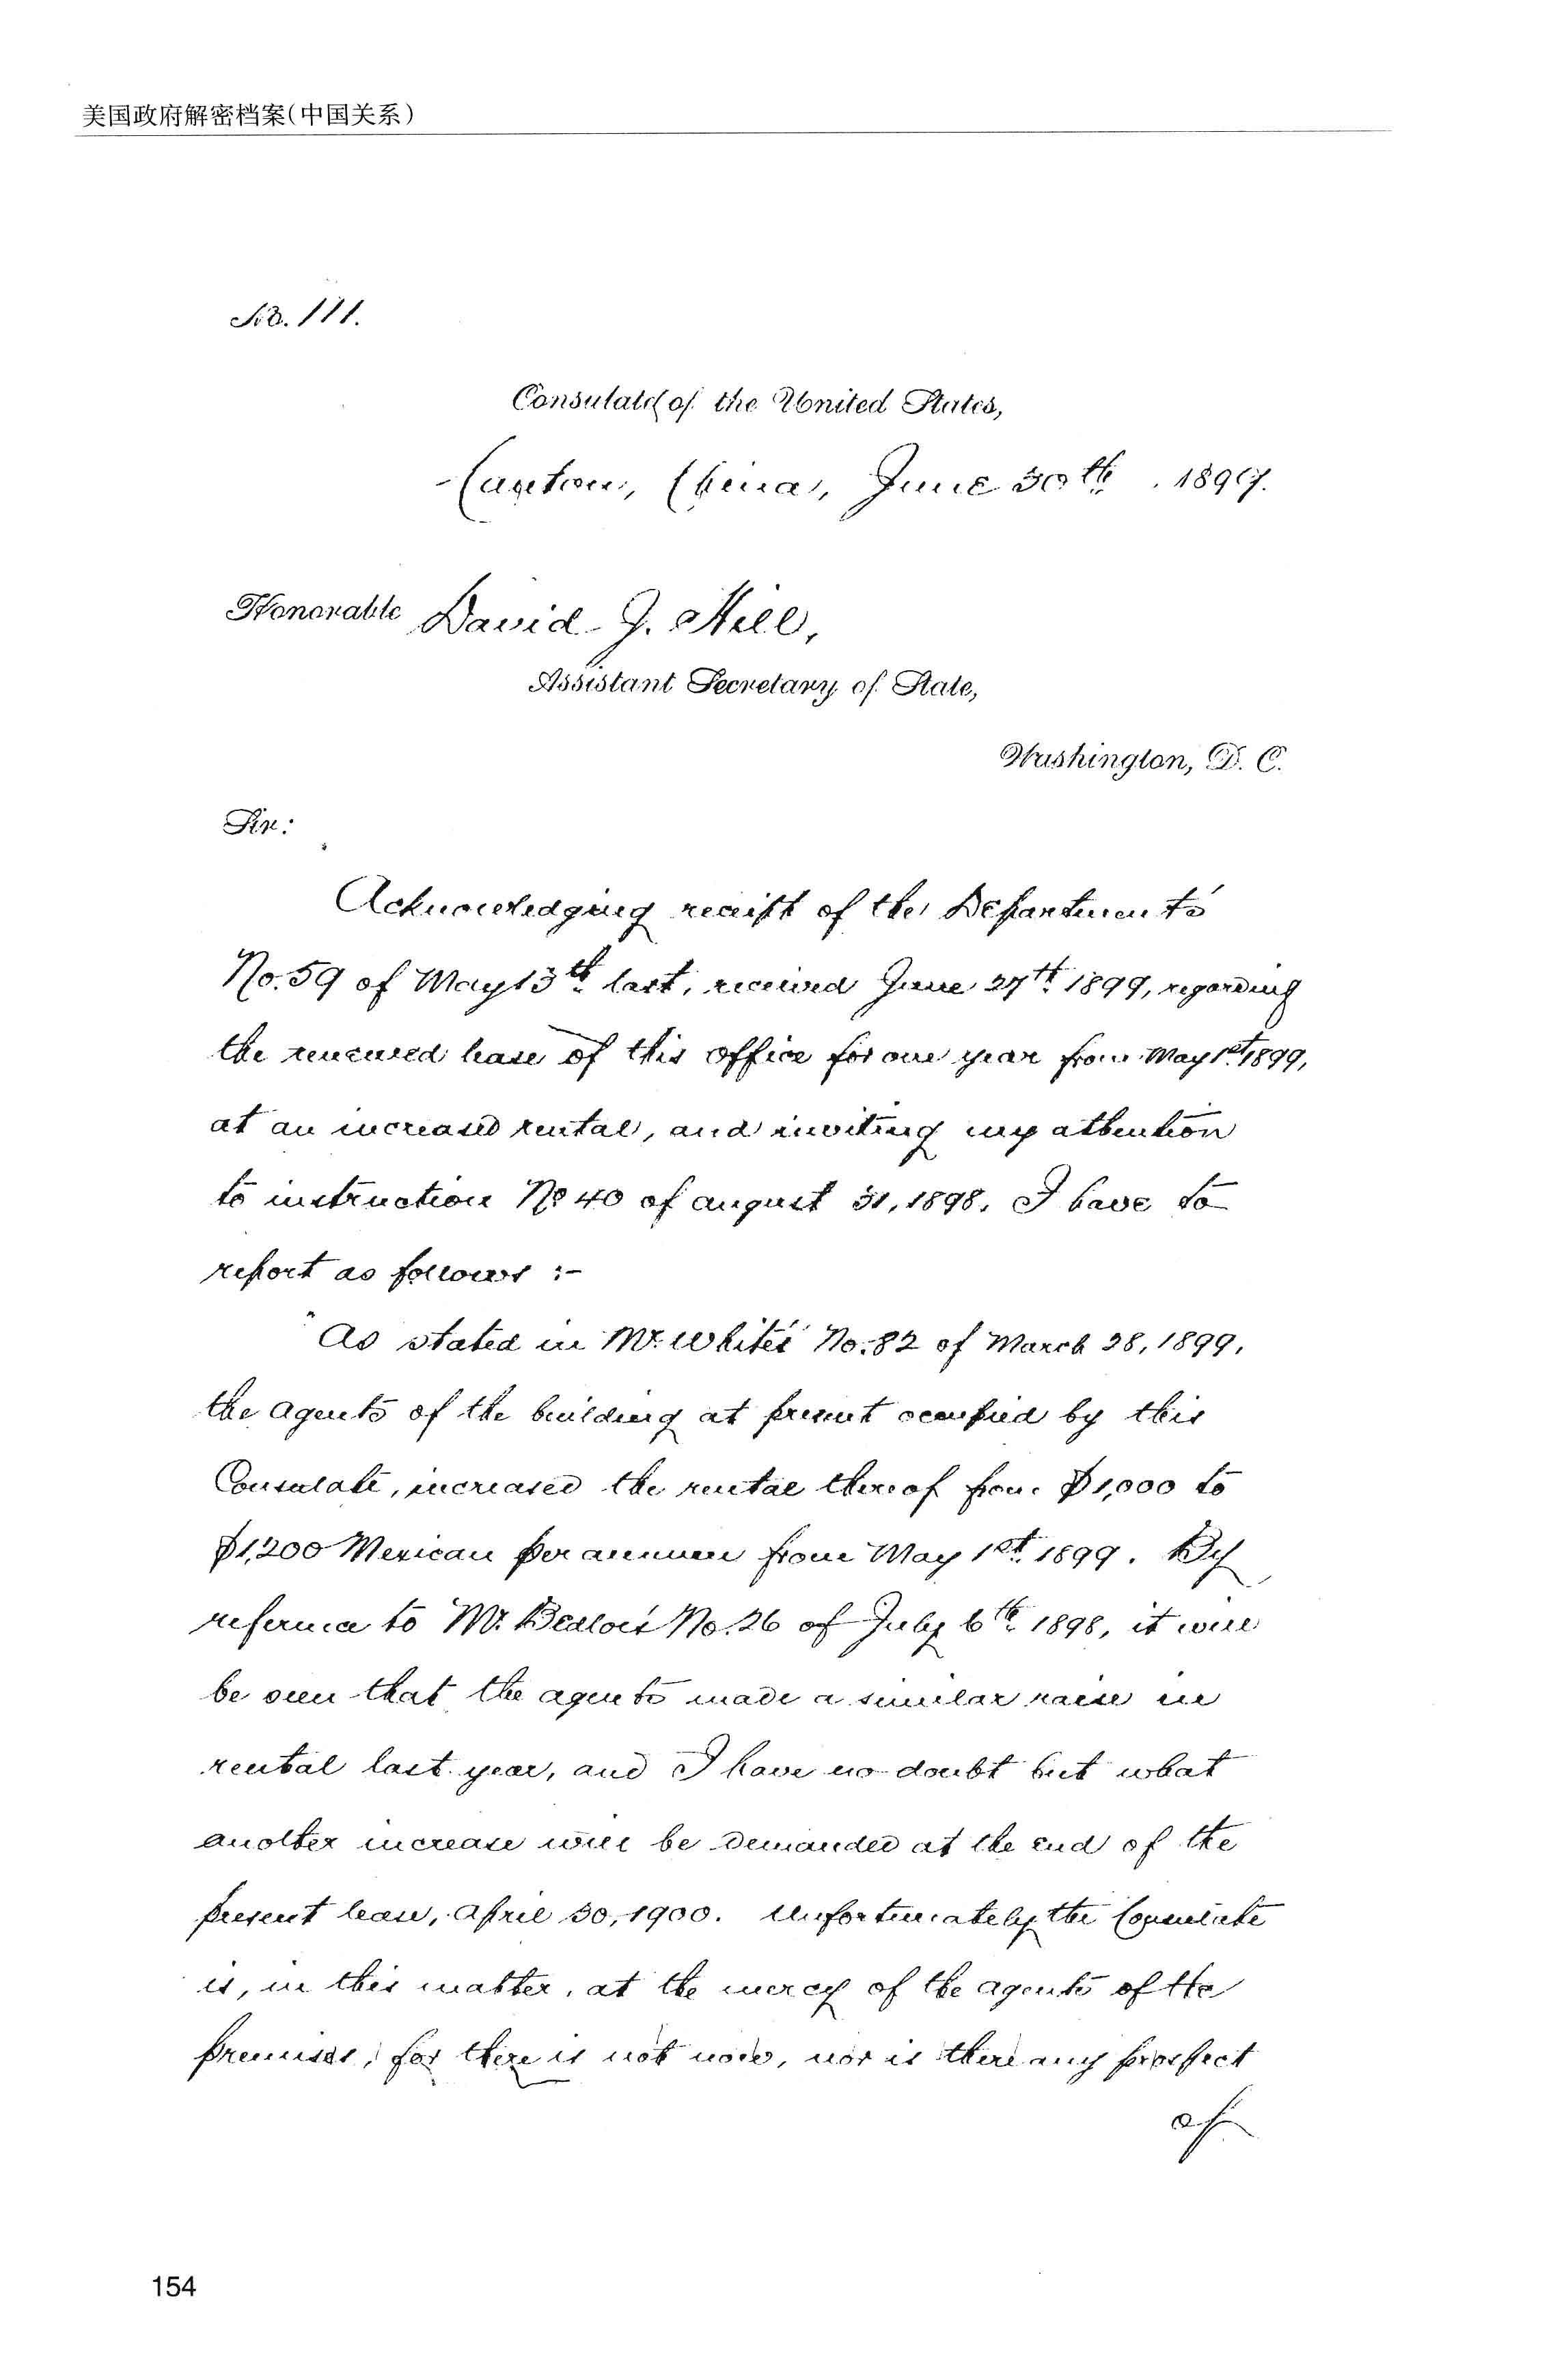 美国政府解密档案(中国关系)
No. 111.
Consulate of the United States,
Canton, China, June 30th. 1899.
Honorable David J. Hill,
Assistant Secretary of State,
Washington, D. C.
Sir:
Acknowledging receipt of the Department's
No. 59 of May 13th last, received June 27th 1899, regarding
the renewed lease of this office for one year from May 1st 1899,
at an increased rental, and inviting my attention
to instruction No 40 of August 31, 1898, I have to
report as follows :-
As stated in Mr. White's No. 82 of March 28, 1899,
the agents of the building at present occupied by this
Consulate, increased the rental thereof from $1,000 to
$1,200 Mexican per annum from May 1st 1899. By
reference to Mr. Bedloe's No. 26 of July 6th 1898, it will
be seen that the agents made a similar raise in
rental last year, and I have no doubt but what
another increase will be demanded at the end of the
present lease, April 30, 1900. Unfortunately the Consulate
is, in this matter, at the mercy of the agents of the
premises, for there is not now, nor is there any prospect
of
154